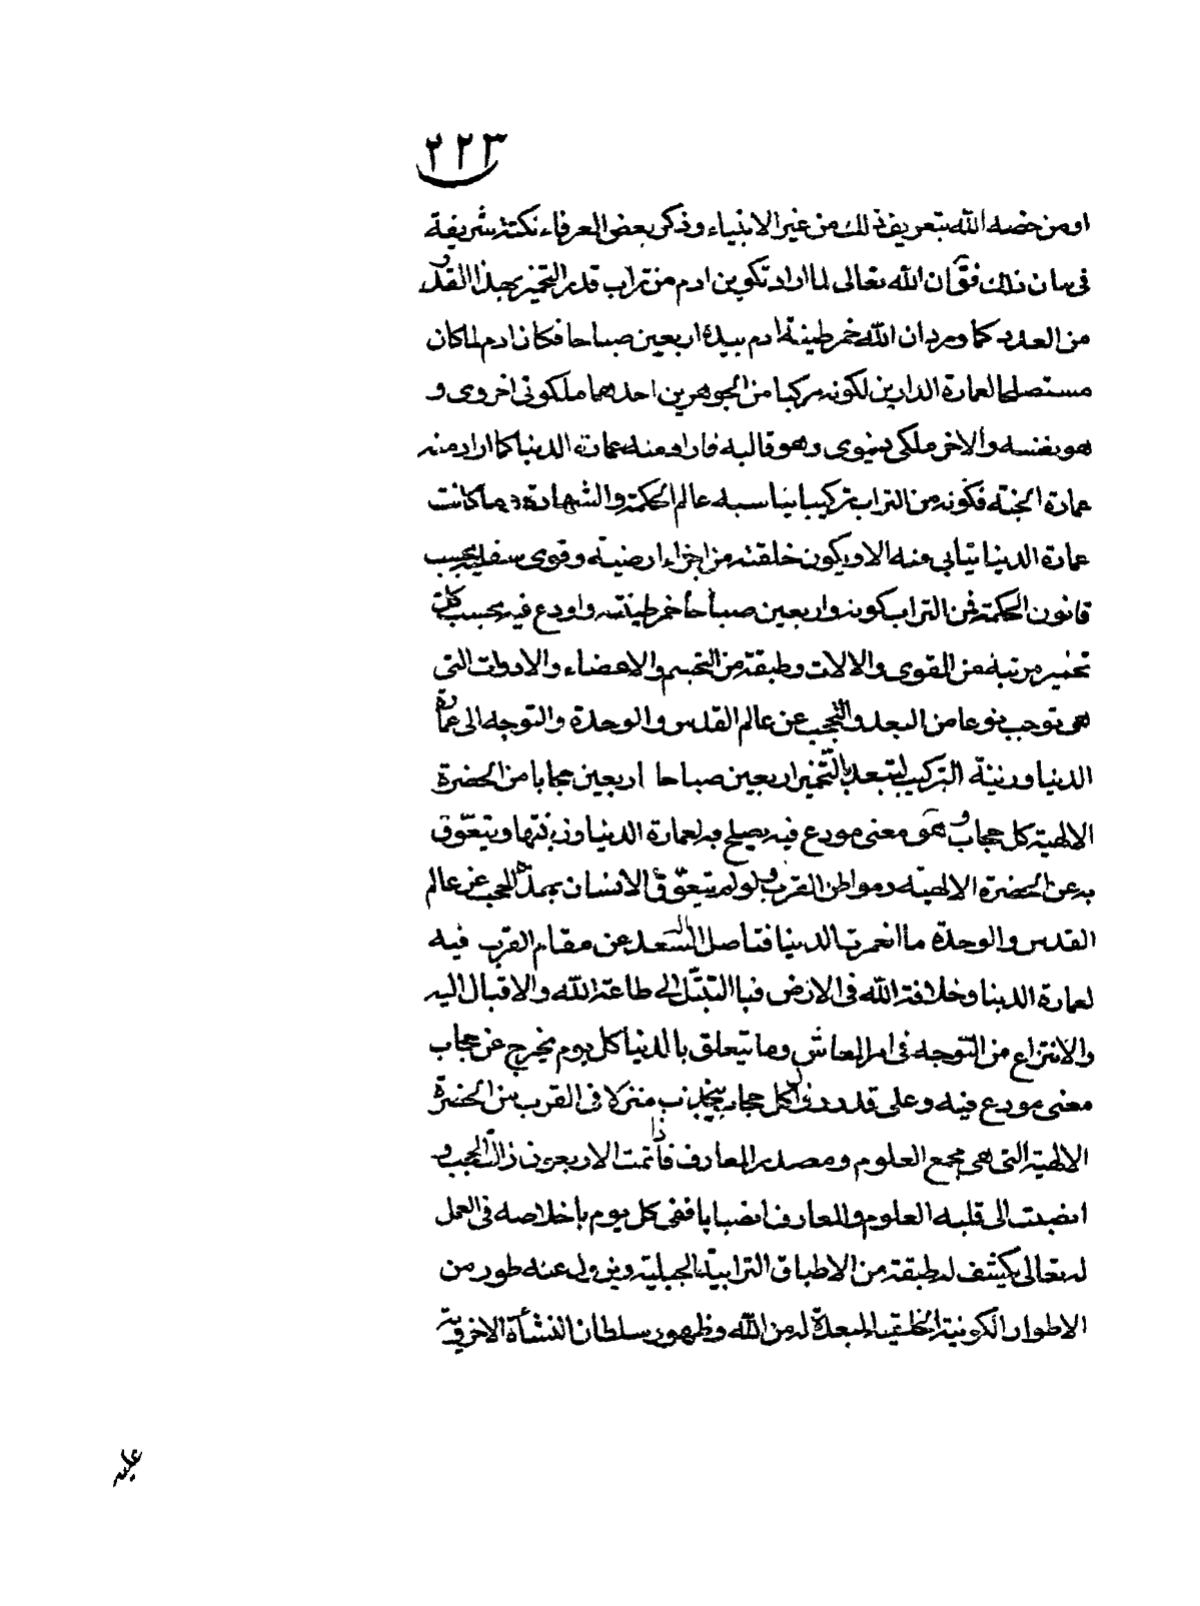 ٢٢٣
او من خصه الله بتعريف ذلك من غير الانبياء وذكر بعض العرفاء نكتة شريفة
فى بيان ذلك فقال ان الله تعالى لما اراد تكوين ادم من تراب قدر التخمير بهذا القدر
من العدد كما ورد ان الله خمر طينة ادم بيده اربعين صباحا فكان ادم لما كان
مستصلحا لعمارة الدارين لكونه مركبا من الجوهرين احدهما ملكوتى اخروى و
هو نفسه والاخر ملكى دنيوى وهو قالبه فاراد منه عمارة الدنيا كما اراد منه
عمارة الجنة فكونه من التراب تركيبا يناسبه عالم الحكمة والشهادة وما كانت
عمارة الدنيا يتأبى منه الا ويكون خلقته من اجزاء ارضية وقوى سفلية بحسب
قانون الحكمة فمن التراب كونه واربعين صباحا خمر طينته واودع فيه بحسب كل
تخمير مرتبة من القوى والالات وطبقة من التجسم والاعضاء والادوات التى
هى توجب نوعا من البعد والتحجب عن عالم القدس والوحدة والتوجه الى عمارة
الدنيا وزينة التركيب ليتبعد بالتخمير اربعين صباحا اربعين حجابا من الحضرة
الالهية كل حجاب هو معنى مودع فيه يصلح به لعمارة الدنيا وزينتها ويتعوق
به عن الحضرة الالهية ومواطن القرب ولو لم يتعوق الانسان بهذه الحجب عن عالم
القدس والوحدة ما انعمرت الدنيا فتاصل البعد عن مقام القرب فيه
لعمارة الدنيا وخلافة الله فى الارض فبا التبتل الى طاعة الله والاقبال اليه
والانتزاع من التوجه فى امر المعاش وما يتعلق بالدنيا كل يوم يخرج عن حجاب
معنى مودع فيه وعلى قدر زوال كل حجاب ينجذب منزلا فى القرب من الحضرة
الالهية التى هى مجمع العلوم ومصدر المعارف فاذا تمت الاربعون زالت الحجب و
انصبت الى قلبه العلوم والمعارف انصبابا ففى كل يوم باخلاصه فى العمل
له تعالى يكشف له طبقة من الاطباق الترابية الجبلية ويزول عنه طور من
الاطوار الكونية الخلقية المبعدة له من الله وظهور سلطان النشأة الاخروية
عليه